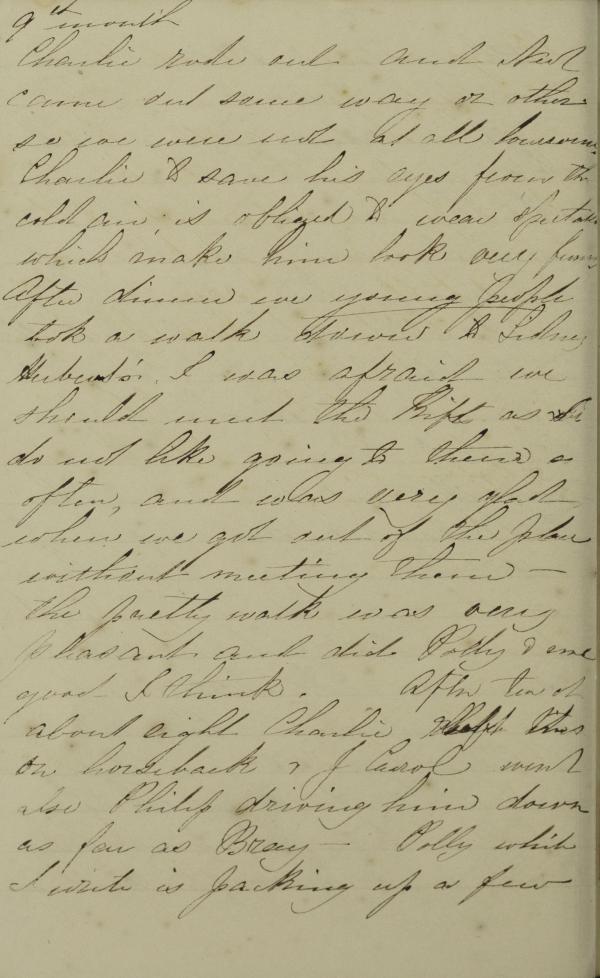 9th month
Charlie rode out and Ned
came out some way or other
so we were not at all lonesome.
Charlie to save his eyes from the
cold air, is obliged to wear
which make him look very funny
After dinner we young people
took a walk down to Sidney
I was afraid we
should meet the as
do not like going to there so
often, and was very glad
when we got out of the place
without meeting them —
the pretty walk was very
pleasant and did Polly & me
good I think. After tea at
about eight Charlie left this
on horseback & J Carol went
also Philip driving him down
as far as Bray — Polly while
I write is packing up a few